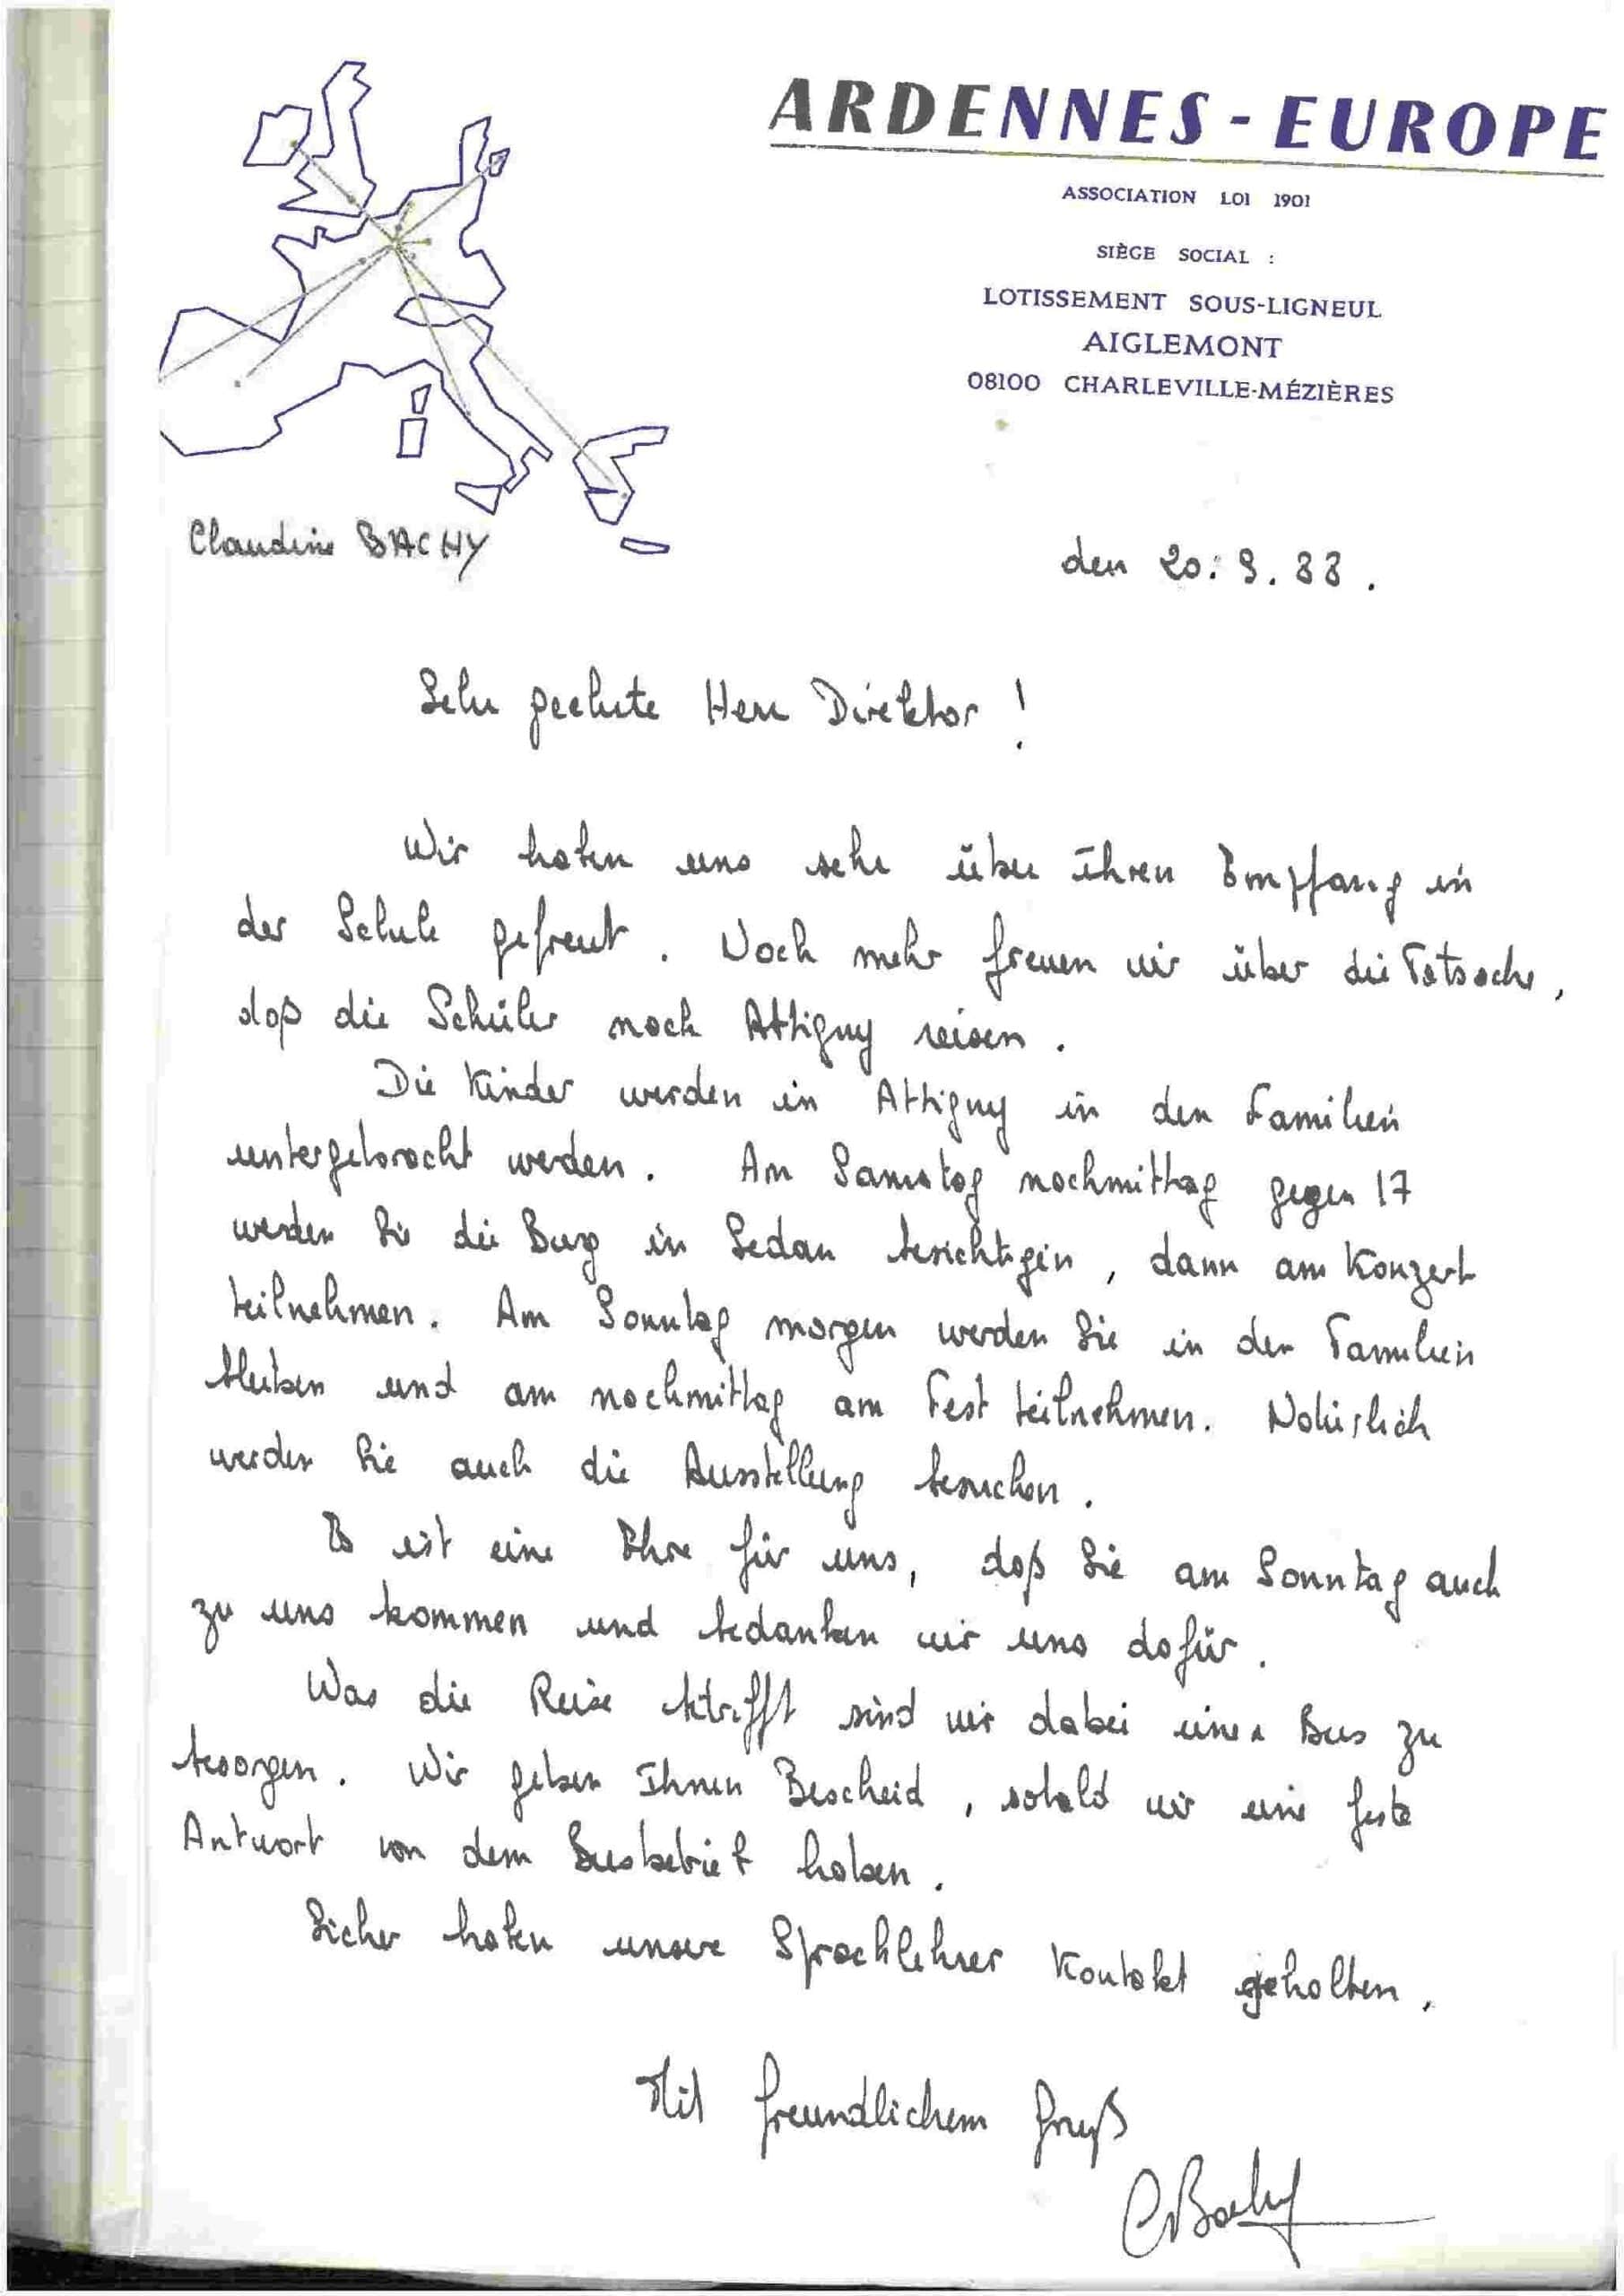 ARDENNES - EUROPE
ASSOCIATION LOI 1901
SIÈGE SOCIAL :
LOTISSEMENT SOUS-LIGNEUL
AIGLEMONT
08100 CHARLEVILLE-MÉZIÈRES
Claudine BACHY
den 20.9.88.
Sehr geehrte Herr Direktor !
Wir haben uns sehr über ihren Empfang in
der Schule gefreut. Noch mehr freuen wir über die Tatsache,
daß die Schüler nach Attigny reisen.
Die Kinder werden in Attigny in den Familien
untergebracht werden. Am Samstag nachmittag gegen 17
werden Sie die Burg in Sedan besichtigen, dann am Konzert
teilnehmen. Am Sonntag morgen werden Sie in den Familien
bleiben und am nachmittag am Fest teilnehmen. Natürlich
werden Sie auch die Ausstellung besuchen.
Es ist eine Ehre für uns, daß Sie am Sonntag auch
zu uns kommen und bedanken wir uns dafür.
Was die Reise betrifft sind wir dabei einen Bus zu
besorgen. Wir geben Ihnen Bescheid, sobald wir eine feste
Antwort von dem Busbetrieb haben.
Sicher haben unsere Sprachlehrer Kontakt gehalten.
Mit freundlichem Gruß
CBachy